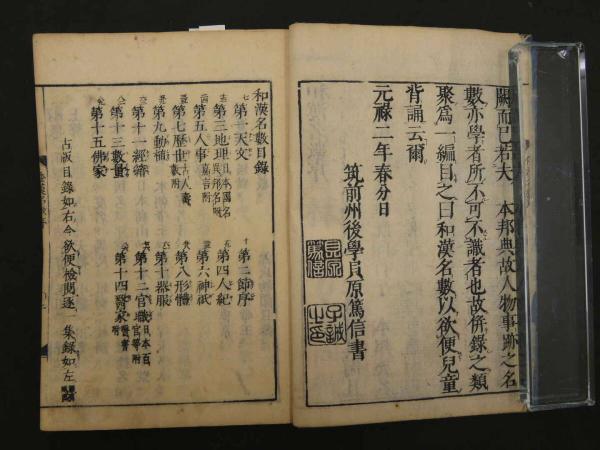 闕而已若夫　本邦典故人物事跡之名
數亦學者所不可不識者也故併錄之類
聚爲一編目之曰和漢名數以欲便兒童
背誦云爾
元祿二年春分日
筑前州後學貝原篤信書
貝原
篤信
子誠
之印
和漢名數目錄
第一天文
第二節序
第三地理 日本國名
第四人紀
第五人事
第六神祇
第七歷世
第八形體
第九動植
第十器服
第十一經籍
第十二官職 日本百官等附
第十三數量
第十四醫家 醫書附
第十五佛家
占版目錄如右今欲便檢閱逐　集錄如左